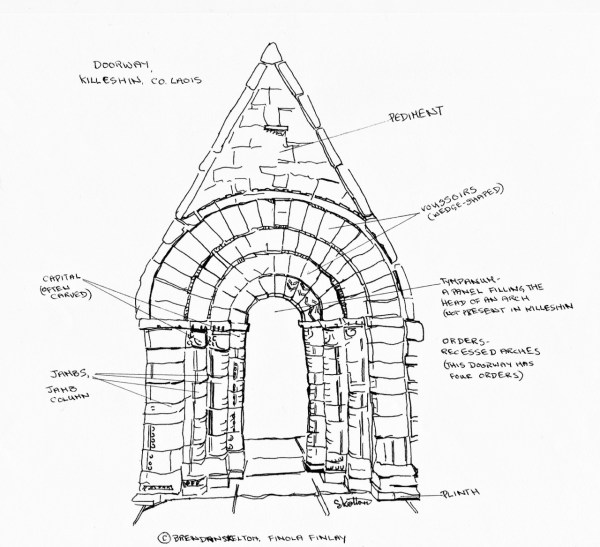 DOORWAY,
KILLESHIN, CO. LAOIS
PEDIMENT
VOUSSOIRS
(WEDGE-SHAPED)
CAPITAL
(OFTEN
CARVED)
TYMPANUM-
A PANEL FILLING THE
HEAD OF AN ARCH
(NOT PRESENT IN KILLESHIN
ORDERS-
RECESSED ARCHES
(THIS DOORWAY HAS
FOUR ORDERS)
JAMBS,
JAMB
COLUMN
PLINTH
Skelton
© BRENDAN SKELTON, FINOLA FINLAY